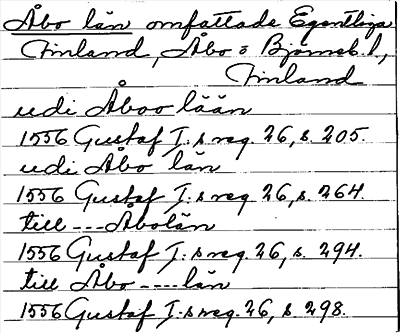 Åbo län omfattade Egentliga
Finland, Åbo o Björneb. l,
Finland
udi Åboo lään
1556 Gustaf I:s reg. 26, s. 205.
udi Åbo län
1556 Gustaf I:s reg. 26, s. 264.
till --- Åbolän
1556 Gustaf I:s reg. 26, s. 294.
till Åbo ---- län
1556 Gustaf I:s reg. 26, s. 298.